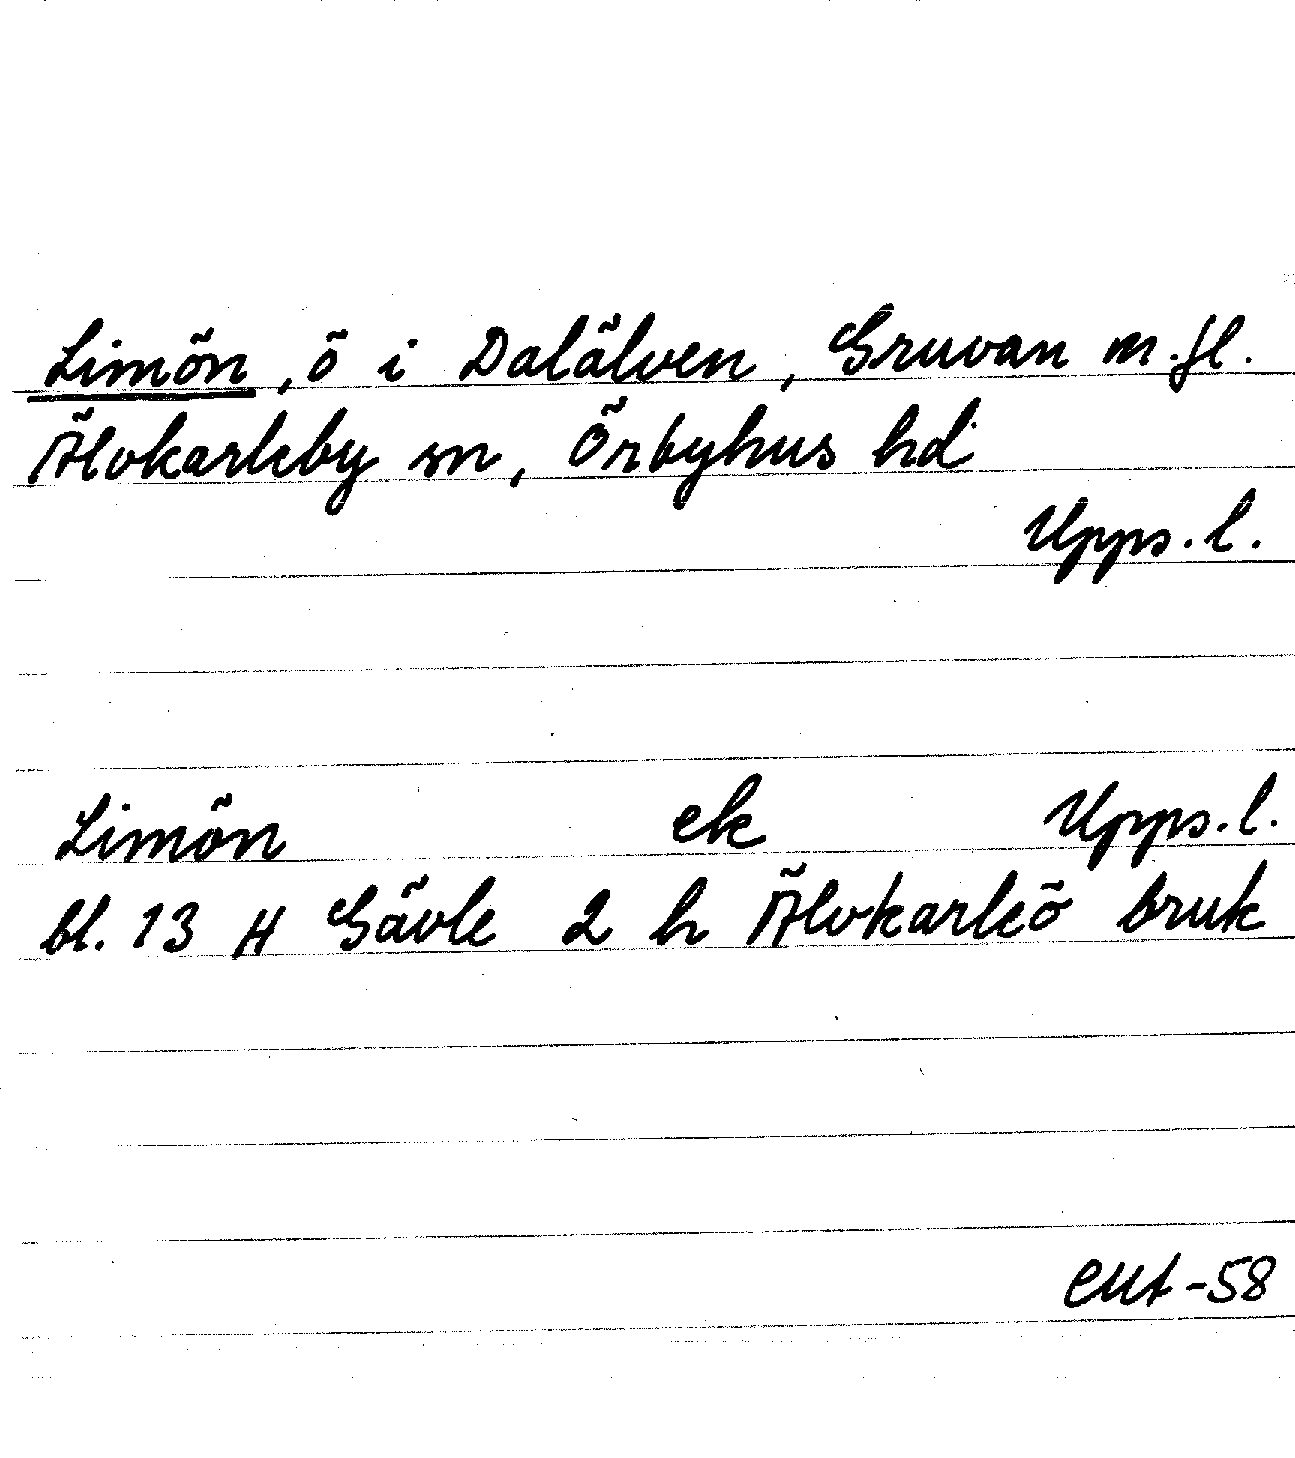 Limön, ö i Dalälven, Gruvan m.fl.
Älvkarleby sn, Örbyhus hd
Upps.l.
Limön ek Upps.l.
bl. 13 H Gävle 2 h Älvkarleö bruk
-58